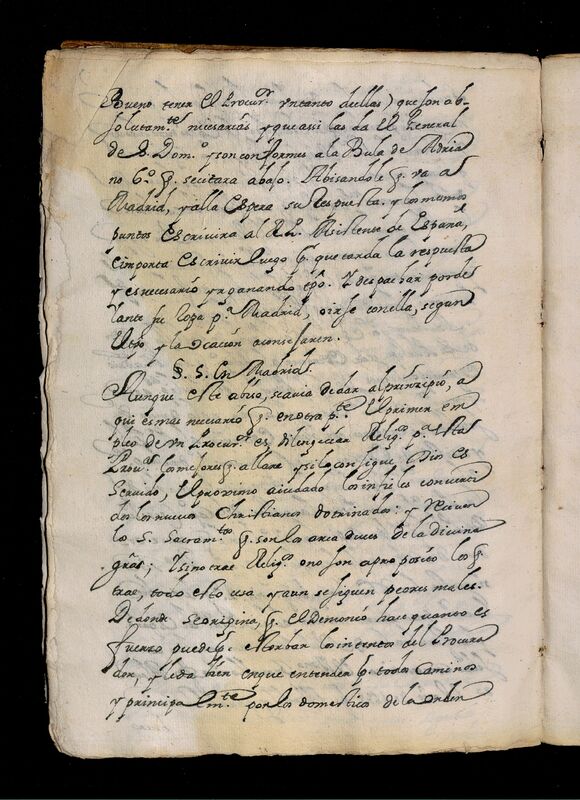 Bueno tener el Procur.r vn tanto de ellas) que son ab-
solutam.te nicesarias y que assi las da el General
de S. Dom.o y son conformes a la Bula de Adria
no 6.o q. se citara abajo. Abisandole q. va a
Madrid, y alla espera su respuesta. y los mismos
puntos escrivira al R.mo Asistente de España,
e importa escrivir luego p. que tarda la respuesta
y es necesario yr ganando tpo. Y despachar por de
lante su ropa p.a Madrid, o irse con ella, segun
el tpo y la ocasion aconsejaren.
§. 5. En Madrid.
Aunque este abiso, se avia de dar al prinzipio, a
qui es mas necesario q. en otra p.te El primer em
pleo de vn Procur.r es diligenciar Relig.s p.a esta
Prov.a los mejores q. allare y si lo consigue Dios es
servido, el proximo aiudado los infieles converti
dos los nuevos Christianos dotrinados: y reciven
lo S. Sacram.tos q. son los arcaduces de la divina
graã; Y si no trae Relig.s o no son a proposito los q.
trae, todo esto cesa y aun se siguen peores males.
De donde se origina, q. el Demonio hace quanto es
fuerzo puede p.a estorbar los intentos del Procura
dor, y le da bien en que entender p. todos caminos
y principalm.te por los domesticos de la orden